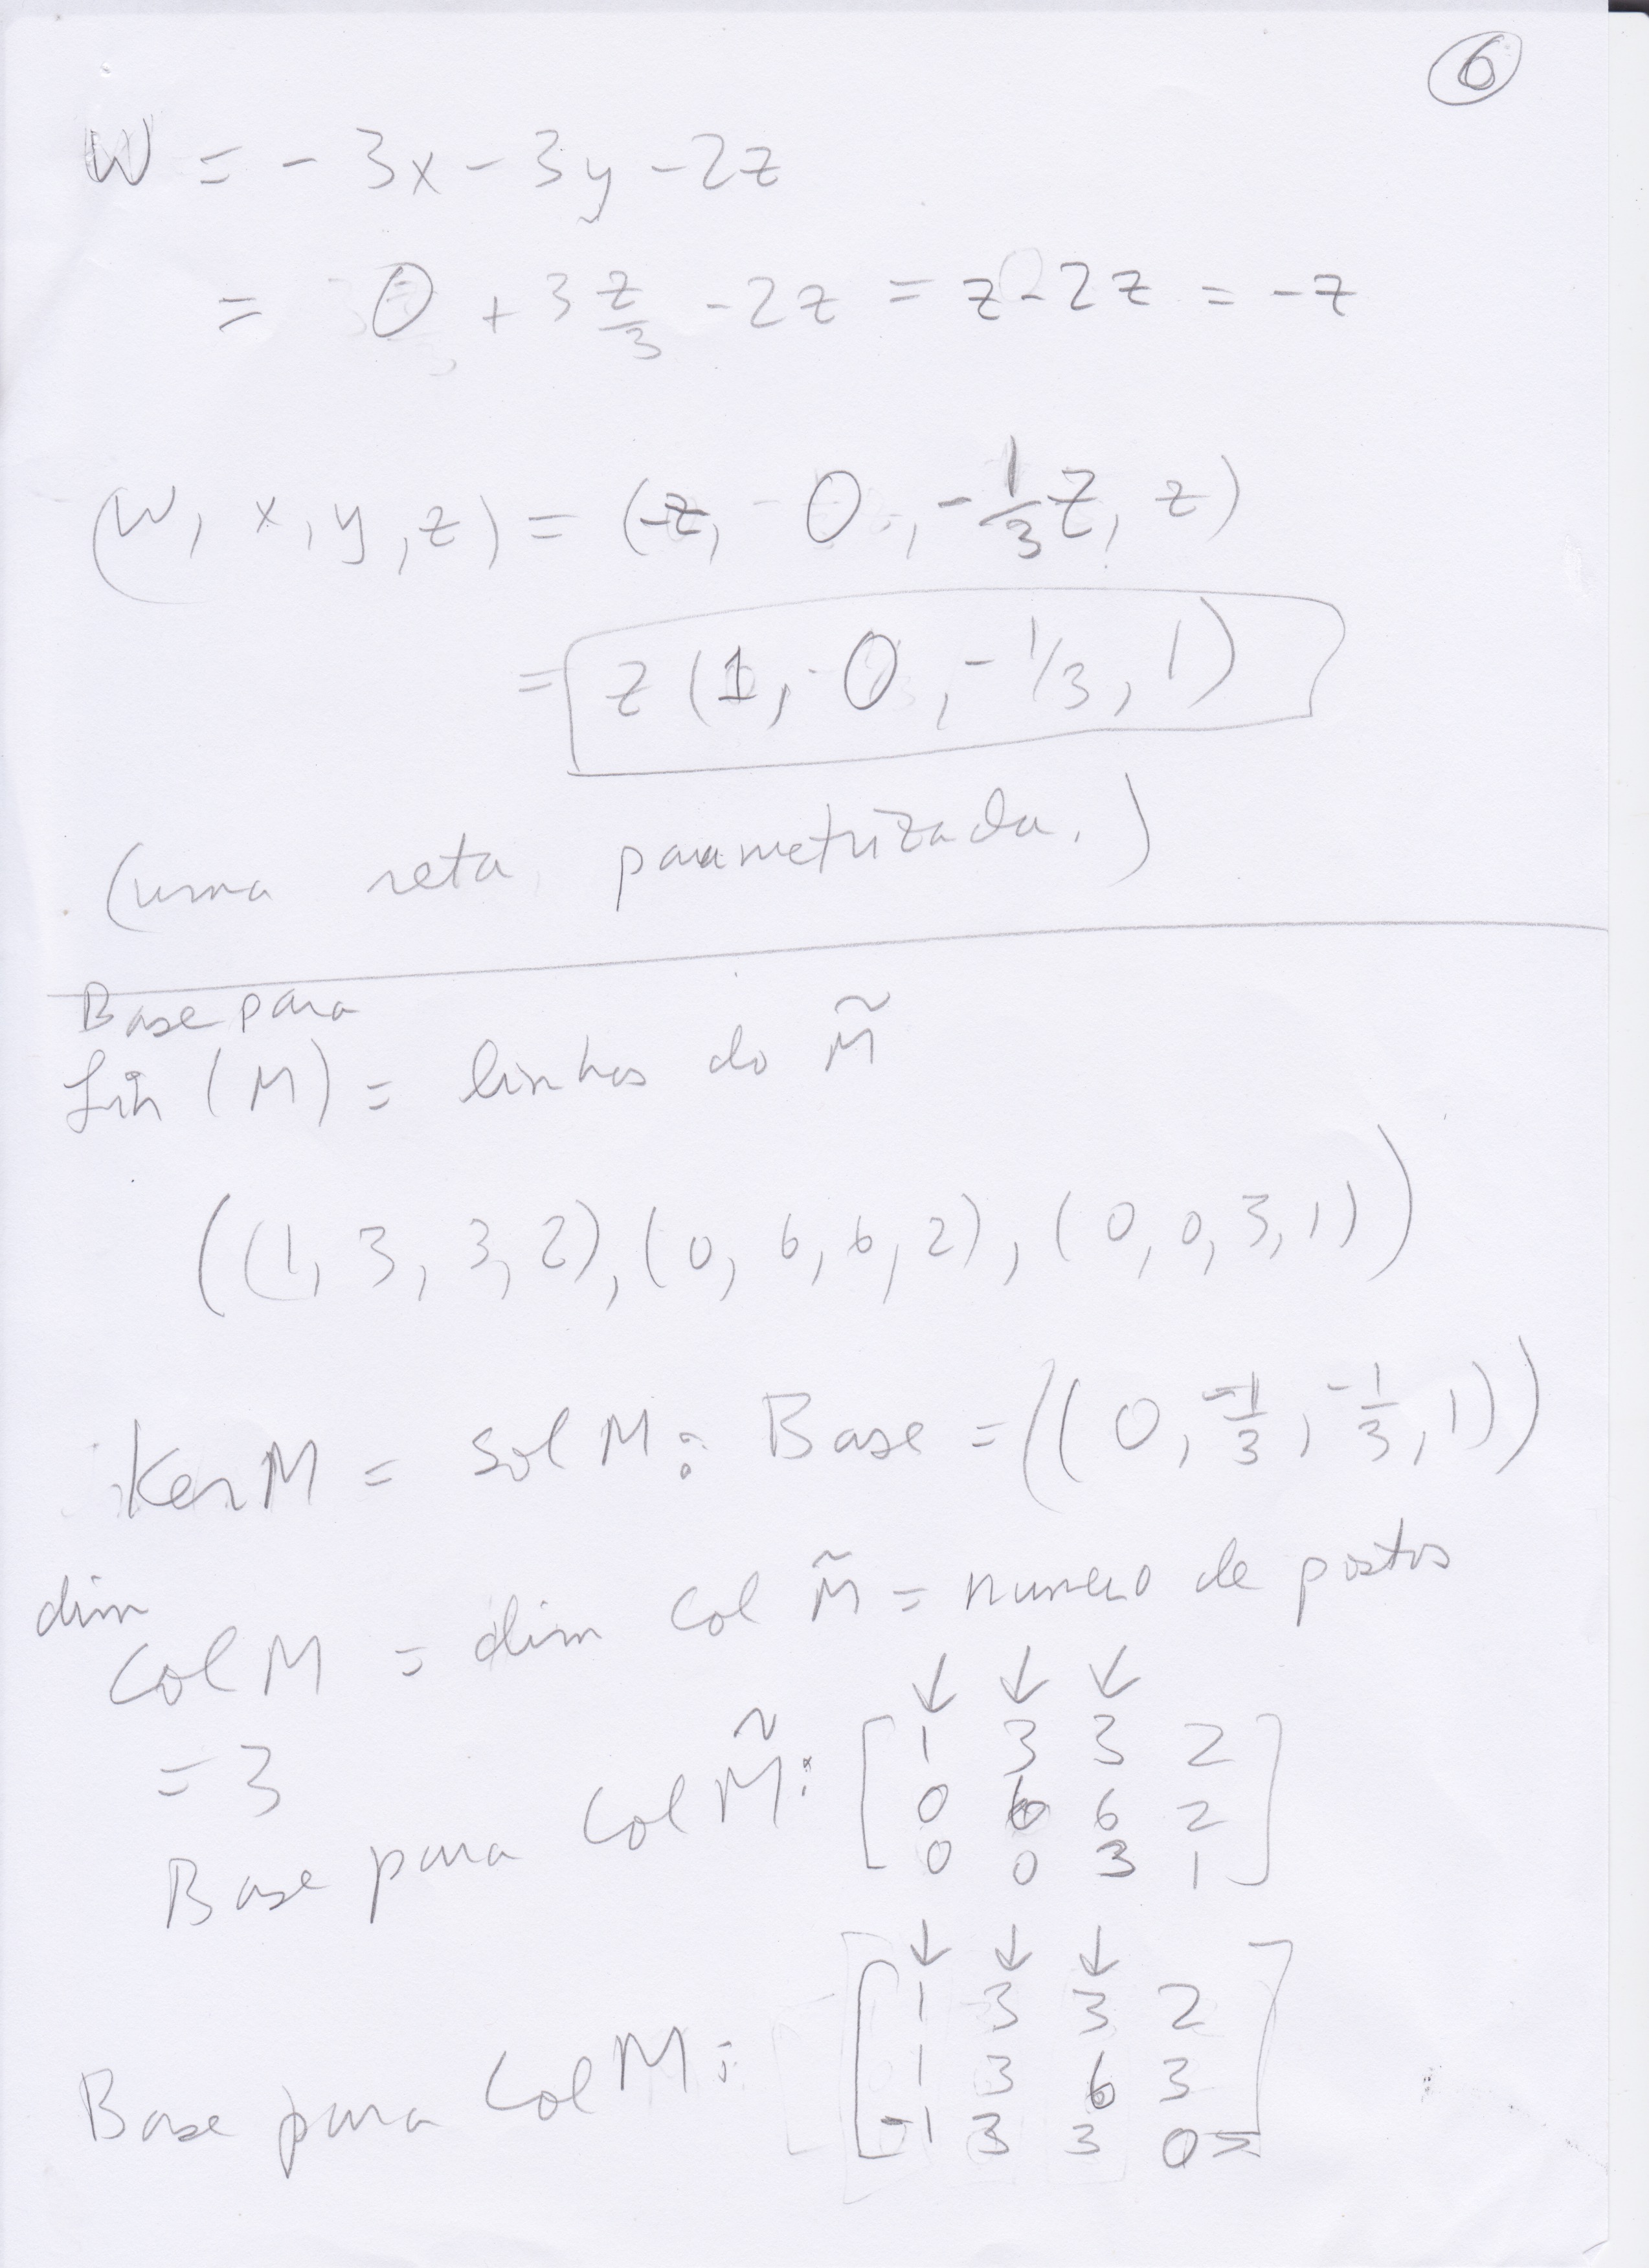 6
W = -3x - 3y - 2z
= 0 + 3 z/3 - 2z = z - 2z = -z
(W, x, y, z) = (-z, 0, -1/3 z, z)
= z (1, 0, -1/3, 1)
(uma reta parametrizada.)
Base para
Lin (M) = linhas do M̃
((1, 3, 3, 2), (0, 6, 6, 2), (0, 0, 3, 1))
Ker M = sol M: Base = ((0, -1/3, -1/3, 1))
dim
Col M = dim Col M̃ = numero de postos
↓ ↓ ↓
= 3
Base para Col M̃: [1 3 3 2
0 6 6 2
0 0 3 1]
↓ ↓ ↓
Base para Col M: [1 3 3 2
1 3 6 3
-1 3 3 0]